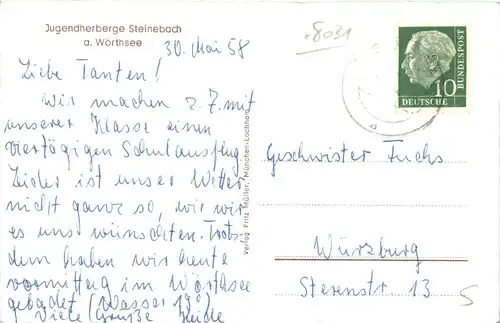 Jugendherberge Steinebach
a. Wörthsee
30. Mai 58
Liebe Tanten!
Wir machen z. Z. mit
unserer Klasse einen
viertägigen Schulausflug.
Leider ist unser Wetter
nicht ganz so, wie wir
es uns wünschten. Trotz-
dem haben wir heute
vormittag im Wörthsee
gebadet (Wasser 19°)
Viele Grüße Heidi
Verlag Fritz Müller, München-Lochhausen
8031
10
DEUTSCHE
BUNDESPOST
Geschwister Fuchs
Würzburg
Sterenstr. 13
5